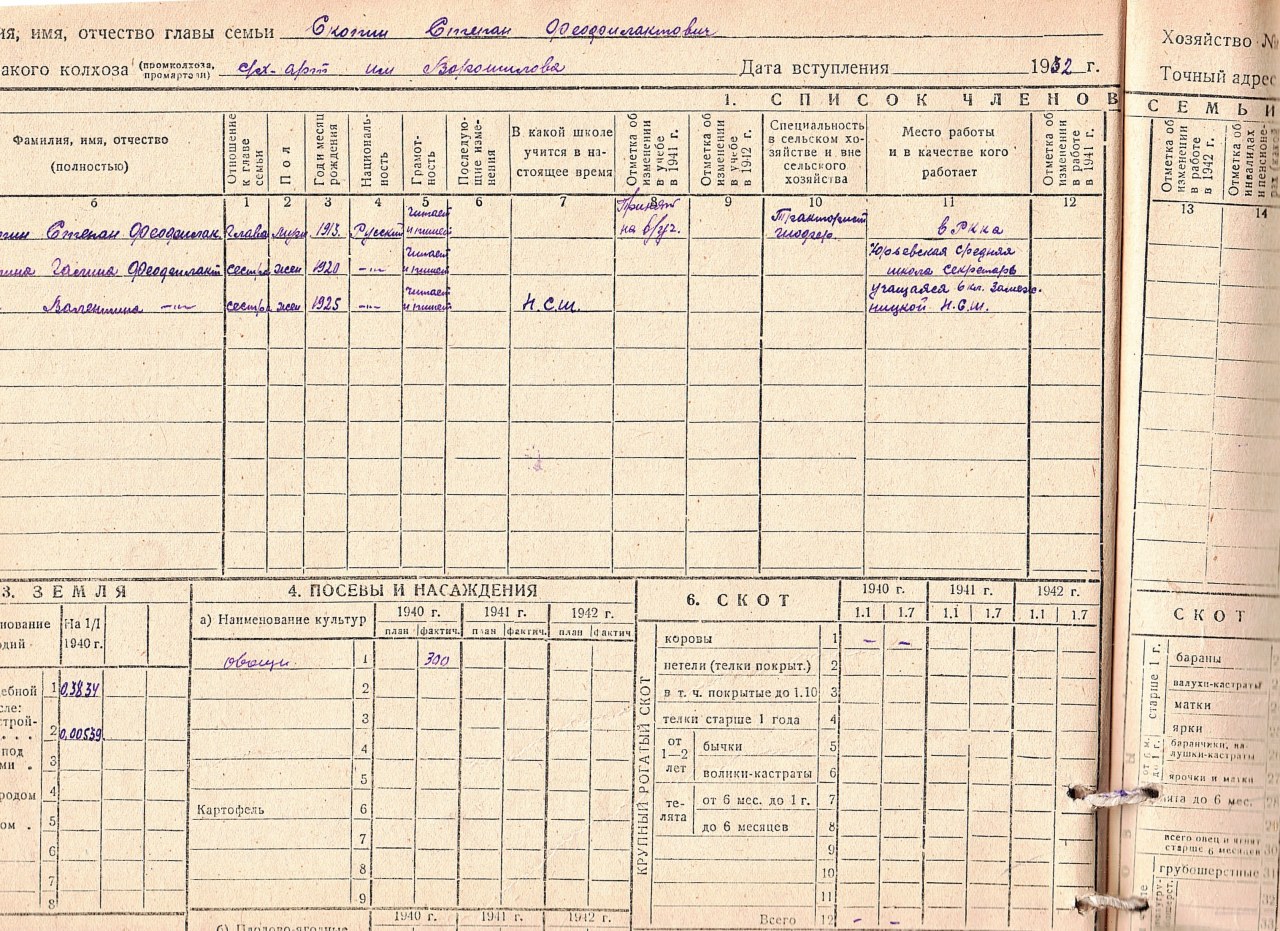 ия, имя, отчество главы семьи Скопин Степан Феодоилактович
акого колхоза (промколхоза, промартели) с/х-арт им Ворошилова Дата вступления 1932 г.
Хозяйство №
Точный адрес
1. СПИСОК ЧЛЕНОВ
СЕМЬИ
Фамилия, имя, отчество (полностью)
Отношение к главе семьи
Пол
Год и месяц рождения
Националь-ность
Грамот-ность
Последую-щие изме-нения
В какой школе учится в на-стоящее время
Отметка об изменении в учебе в 1941 г.
Отметка об изменении в учебе в 1942 г.
Специальность в сельском хо-зяйстве и вне сельского хозяйства
Место работы и в качестве кого работает
Отметка об изменении в работе в 1941 г.
Отметка об изменении в работе в 1942 г.
Отметка об инвалидах
б 1 2 3 4 5 6 7 8 9 10 11 12 13 14
пин Степан Феодоилак. Глава муж. 1913 Русский читает и пишет на в/уч. Тракторист в Ркка
пина Галина Феодоилакт сестра жен 1920 -"- читает и пишет Юрьевская средняя школа секретарь
Валентина -"- сестра жен 1925 -"- читает и пишет Н.С.Ш. учащаяся 6 кл. ницкой Н.С.Ш.
3. ЗЕМЛЯ
нование
одий
На 1/I 1940 г.
ебной 1 0,3834
сле:
строй-
2 0,00539
под
ми . 3
родом 4
ом . 5
6
7
8
4. ПОСЕВЫ И НАСАЖДЕНИЯ
а) Наименование культур 1940 г. 1941 г. 1942 г.
план фактич. план фактич. план фактич
овощи 1 300
2
3
4
5
Картофель 6
7
8
9
1940 г. 1941 г. 1942 г.
б) Плодово-ягодные
6. СКОТ
1940 г. 1941 г. 1942 г.
1.1 1.7 1.1 1.7 1.1 1.7
КРУПНЫЙ РОГАТЫЙ СКОТ
коровы 1 – –
нетели (телки покрыт.) 2
в т. ч. покрытые до 1.10 3
телки старше 1 года 4
от 1—2 лет
бычки 5
волики-кастраты 6
те-лята
от 6 мес. до 1 г. 7
до 6 месяцев 8
9
10
11
Всего 12 – –
СКОТ
старше 1 г.
бараны
валухи-кастраты
матки
ярки
от 6 м. до 1 г.
баранчики, ва-лушки-кастраты
ярочки и матки
ята до 6 мес.
всего овец и ягнят старше 6 месяцев
грубошерстные